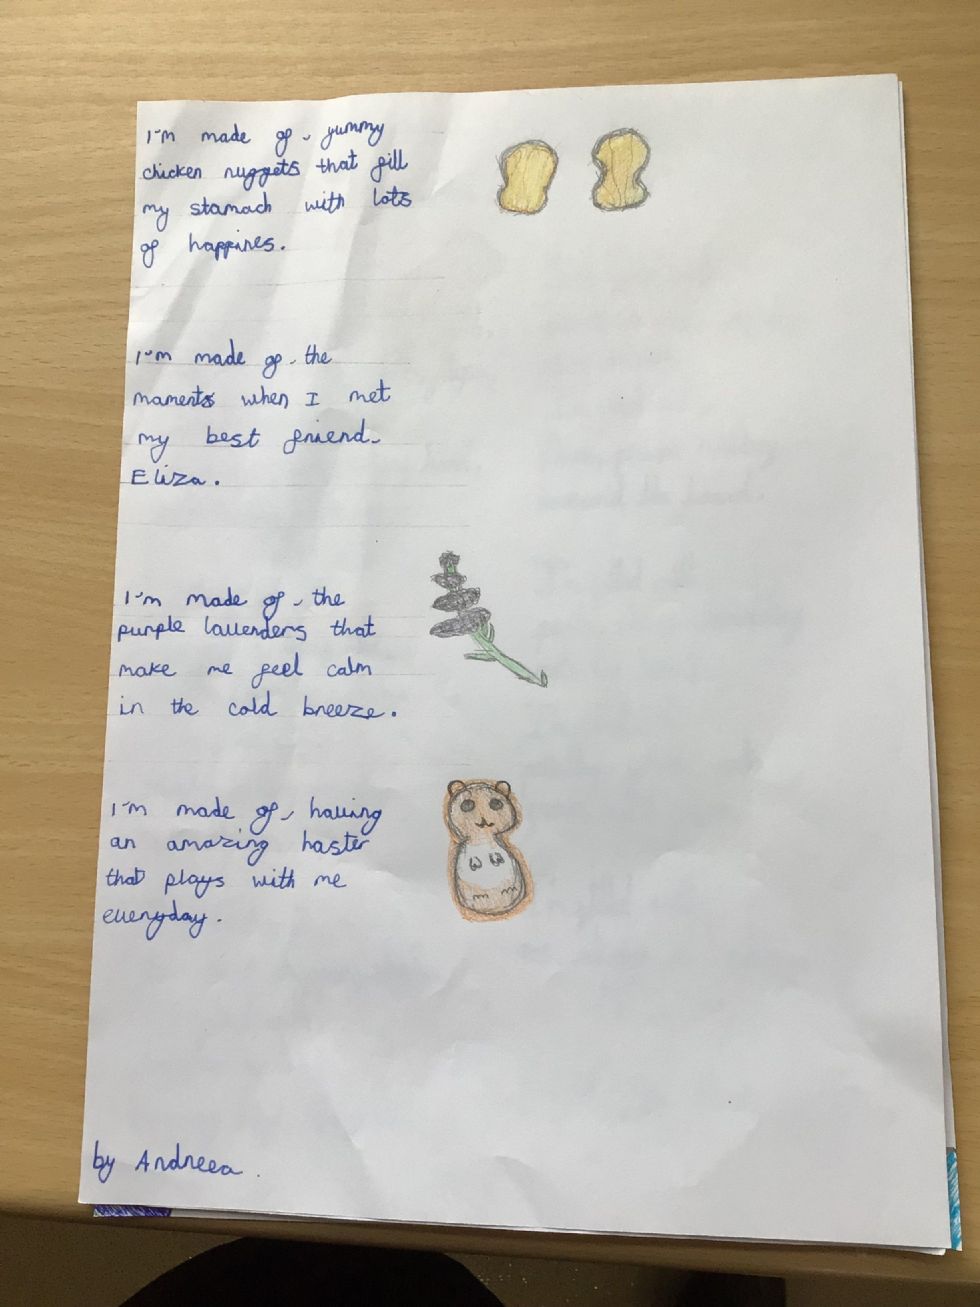 I'm made of yummy
chicken nuggets that fill
my stamach with lots
of happines.
I'm made of the
maments when I met
my best friend
Eliza.
I'm made of the
purple lavenders that
make me feel calm
in the cold breeze.
I'm made of having
an amazing haster
that plays with me
everyday.
by Andreea.